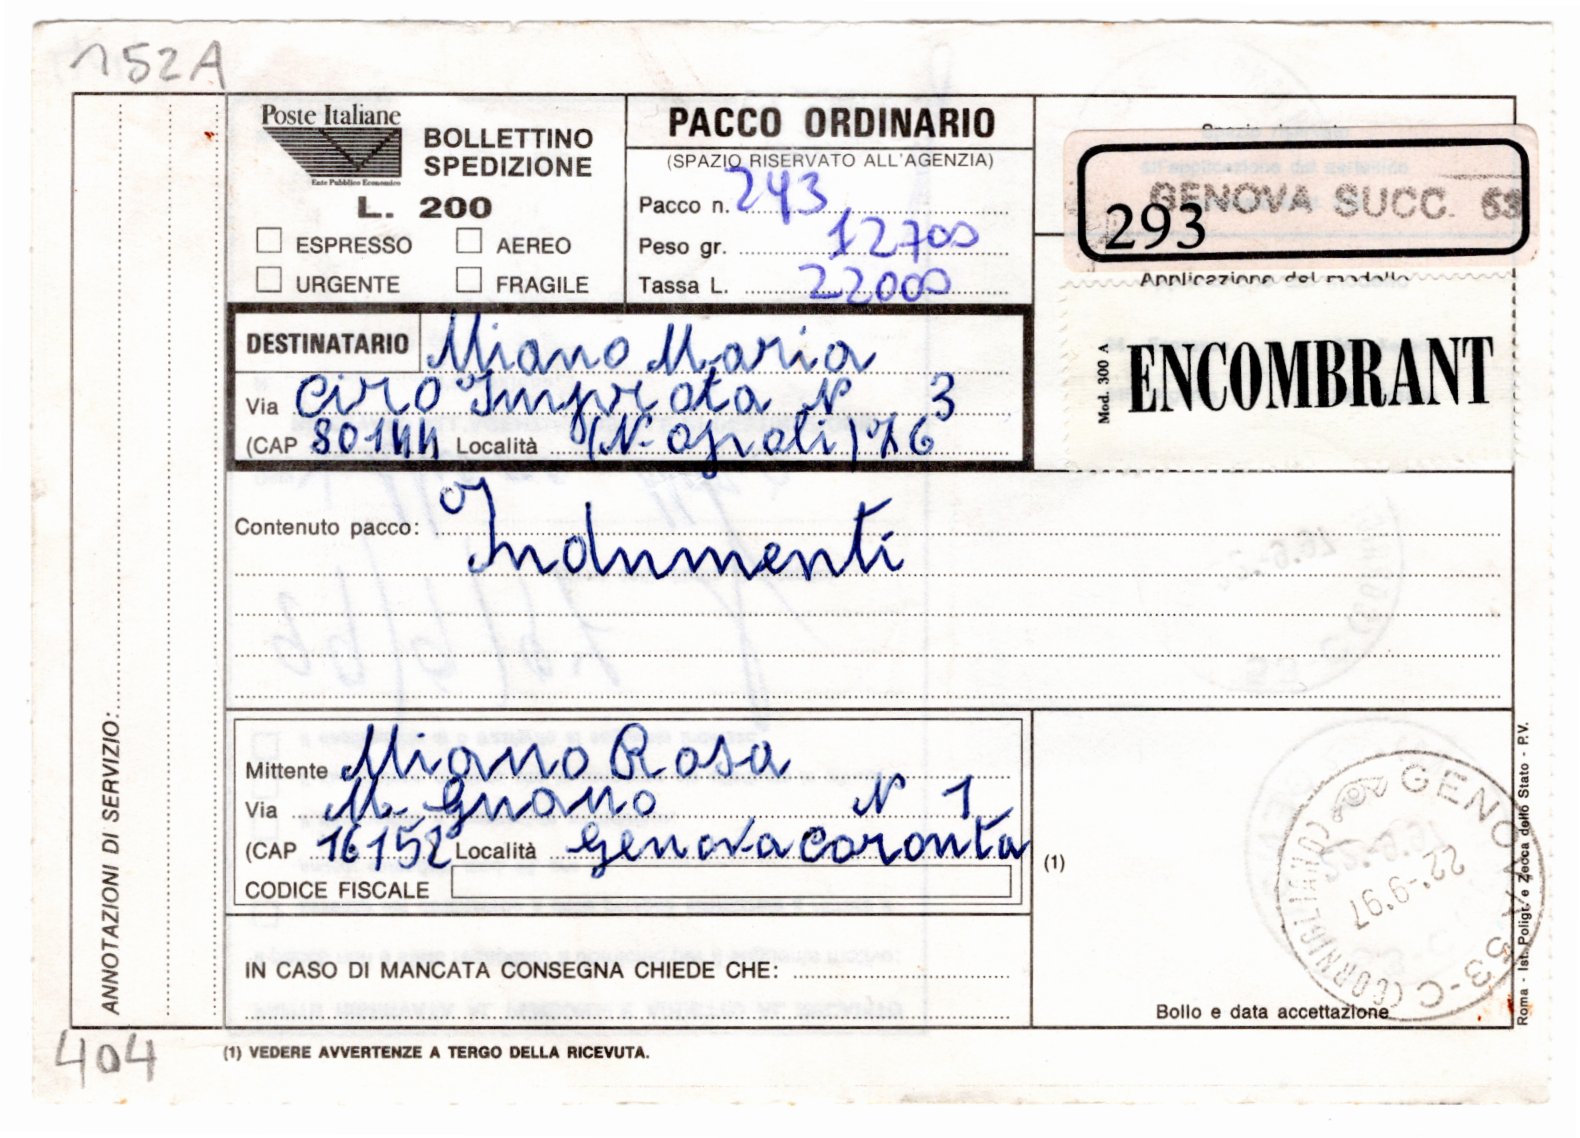 152A
Poste Italiane
Ente Pubblico Economico
BOLLETTINO
SPEDIZIONE
L. 200
ESPRESSO
AEREO
URGENTE
FRAGILE
PACCO ORDINARIO
(SPAZIO RISERVATO ALL'AGENZIA)
Pacco n. 293
Peso gr. 12700
Tassa L. 22000
GENOVA SUCC. 53
293
Applicazione del modello
Mod. 300 A
ENCOMBRANT
DESTINATARIO Miano Maria
Via Ciro Improta N 3
(CAP 80144 Località (Napoli)
Contenuto pacco: Indumenti
Mittente Miano Rosa
Via M. Gnano N 1
(CAP 16152 Località Genova Coronta
CODICE FISCALE
IN CASO DI MANCATA CONSEGNA CHIEDE CHE:
(1)
GENOVA 53-C (CORNIGLIANO)
22-9.97
Bollo e data accettazione
ANNOTAZIONI DI SERVIZIO:
Roma - Ist. Poligr. e Zecca dello Stato - P.V.
404
(1) VEDERE AVVERTENZE A TERGO DELLA RICEVUTA.